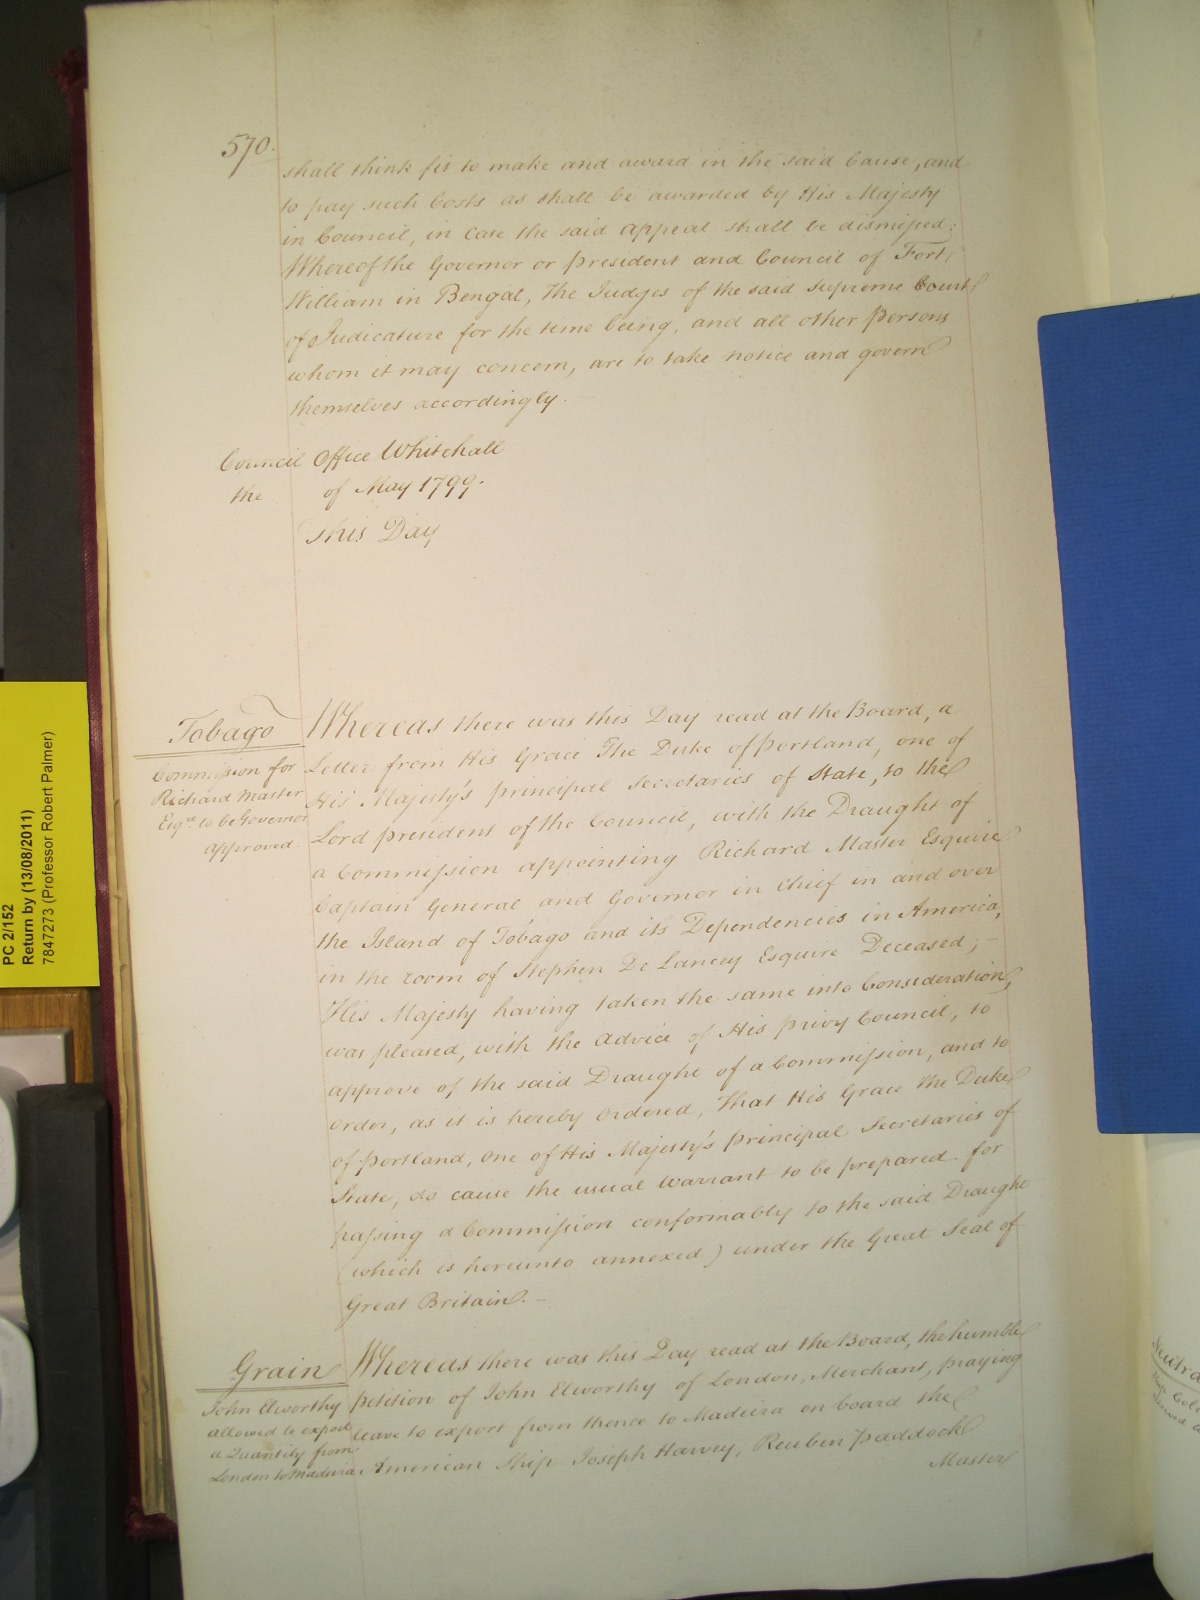 570.
shall think fit to make and award in the said Cause, and
to pay such Costs as shall be awarded by His Majesty
in Council, in case the said Appeal shall be dismissed:
Whereof the Governor or President and Council of Fort
William in Bengal, The Judges of the said Supreme Court
of Judicature for the time being, and all other Persons
whom it may concern, are to take notice and govern
themselves accordingly.
Council Office Whitehall
the of May 1799.
This Day
Tobago
Commission for
Richard Master
Esqre. to be Governor
approved
Whereas there was this Day read at the Board, a
Letter from His Grace The Duke of Portland, one of
His Majesty's Principal Secretaries of State, to the
Lord President of the Council, with the Draught of
a Commission appointing Richard Master Esquire
Captain General and Governor in Chief in and over
the Island of Tobago and its Dependencies in America,
in the room of Stephen De Lancey Esquire Deceased; –
His Majesty having taken the same into Consideration,
was pleased, with the Advice of His Privy Council, to
approve of the said Draught of a Commission, and to
order, as it is hereby Ordered, That His Grace the Duke
of Portland, One of His Majesty's Principal Secretaries of
State, do cause the usual Warrant to be prepared for
passing a Commission conformably to the said Draught
(which is hereunto annexed) under the Great Seal of
Great Britain. –
Grain
John Elworthy
allowed to export
a Quantity from
London to Madeira
Whereas there was this Day read at the Board, the humble
Petition of John Elworthy of London, Merchant, praying
leave to export from thence to Madeira on board the
American Ship Joseph Harvey, Reuben Paddock
Master
PC 2/152
Return by (13/08/2011)
7847273 (Professor Robert Palmer)